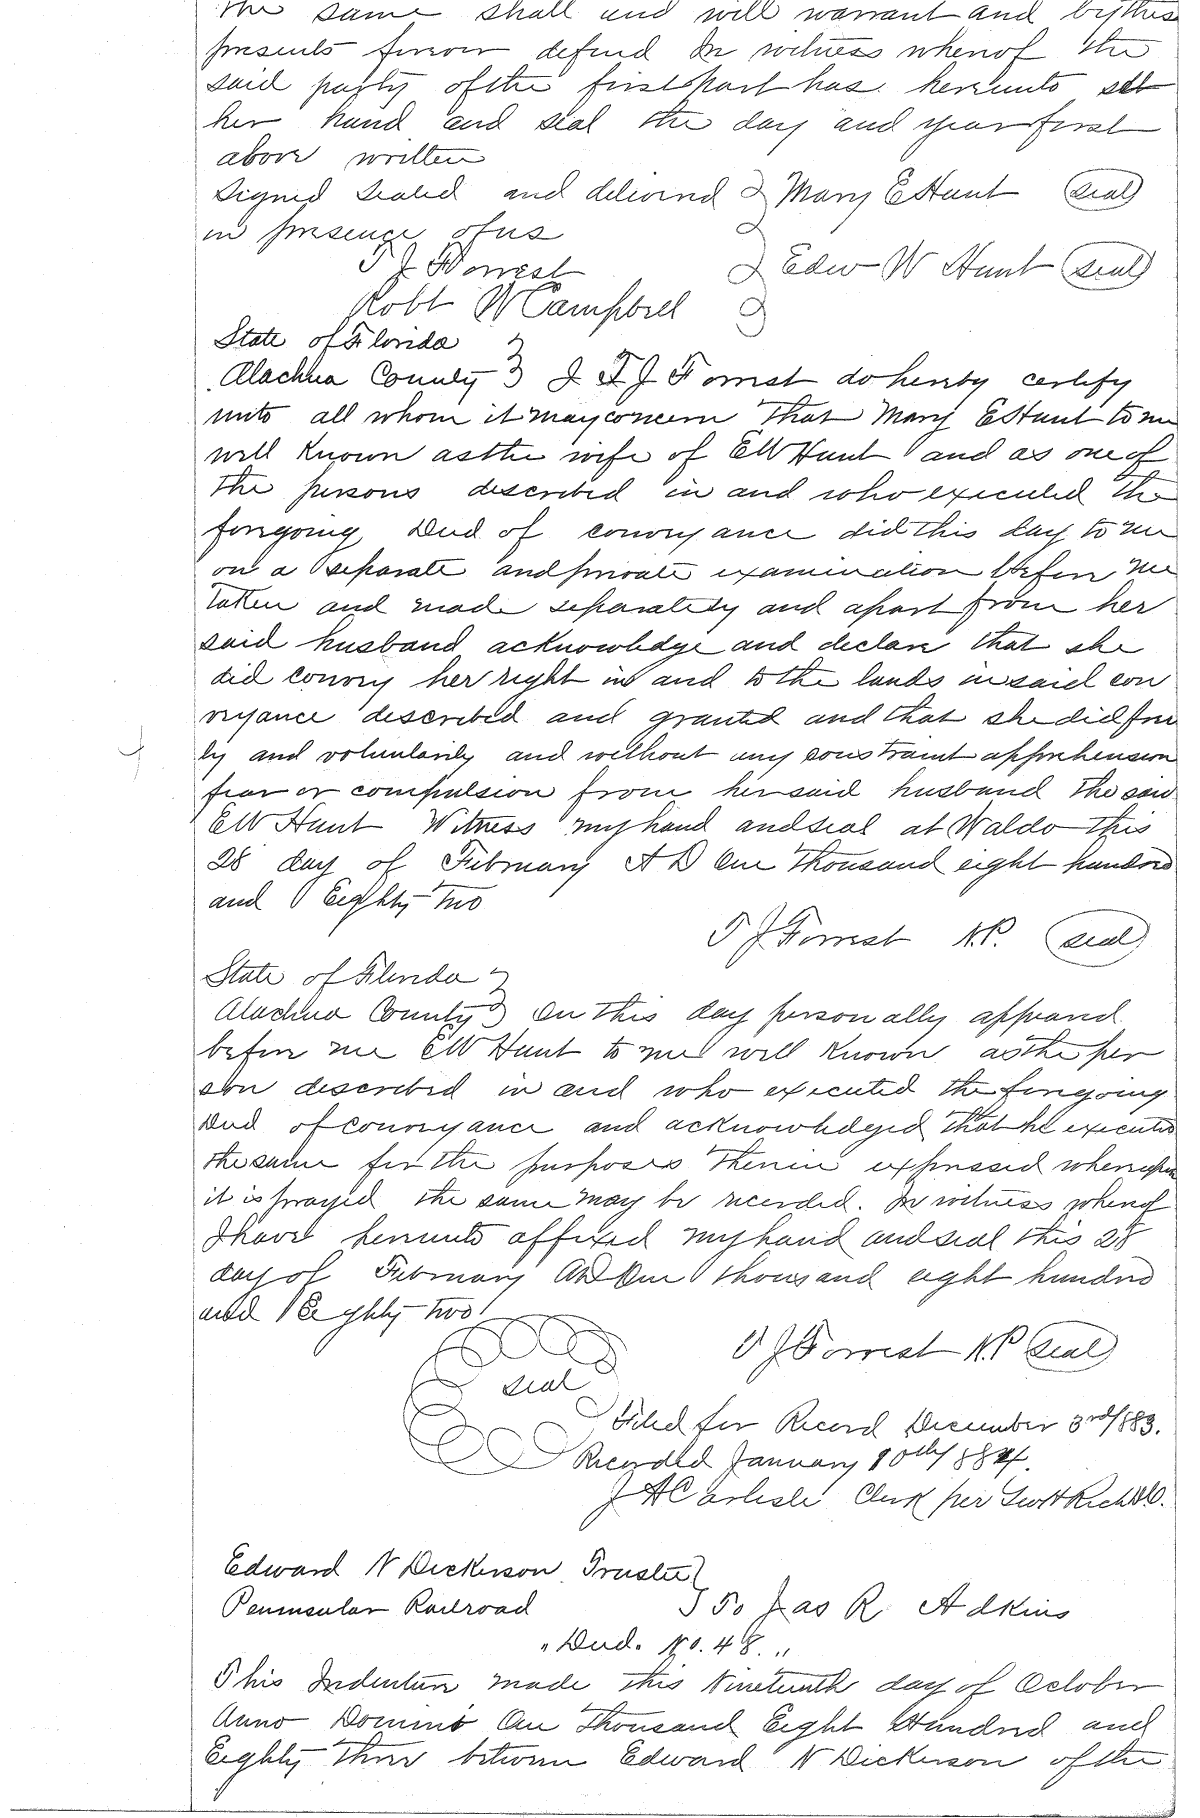 the same shall and will warrant and by these
presents forever defend In witness whereof the
said party of the first part has hereunto set
her hand and seal the day and year first
above written
Signed sealed and delivered } Mary E Hunt (seal)
in presence of us
T J Forrest } Edw W Hunt (seal)
Robt W Campbell
State of Florida }
Alachua County } I T J Forrest do hereby certify
unto all whom it may concern That Mary E Hunt to me
well known as the wife of E W Hunt and as one of
the persons described in and who executed the
foregoing Deed of conveyance did this day to me
on a separate and private examination before me
taken and made separately and apart from her
said husband acknowledge and declare that she
did convey her right in and to the lands in said con
veyance described and granted and that she did free
ly and voluntarily and without any constraint apprehension
fear or compulsion from her said husband the said
E W Hunt Witness my hand and seal at Waldo this
28 day of February A D One thousand eight hundred
and Eighty Two
T J Forrest N.P. (seal)
State of Florida }
Alachua County } On this day personally appeared
before me E W Hunt to me well known as the per
son described in and who executed the foregoing
Deed of conveyance and acknowledged that he executed
the same for the purposes therein expressed whereupon
it is prayed the same may be recorded. In witness whereof
I have hereunto affixed my hand and seal this 28
day of February AD One thousand eight hundred
and Eighty two
T J Forrest N.P (seal)
seal
Filed for Record December 3rd/883.
Recorded January 10th/884.
J A Carlisle Clerk per D.C.
Edward N Dickerson Trustee }
Peninsular Railroad } To Jas R Adkins
"Deed. No. 48."
This Indenture made this Nineteenth day of October
Anno Domini One Thousand Eight Hundred and
Eighty Three between Edward N Dickerson of the